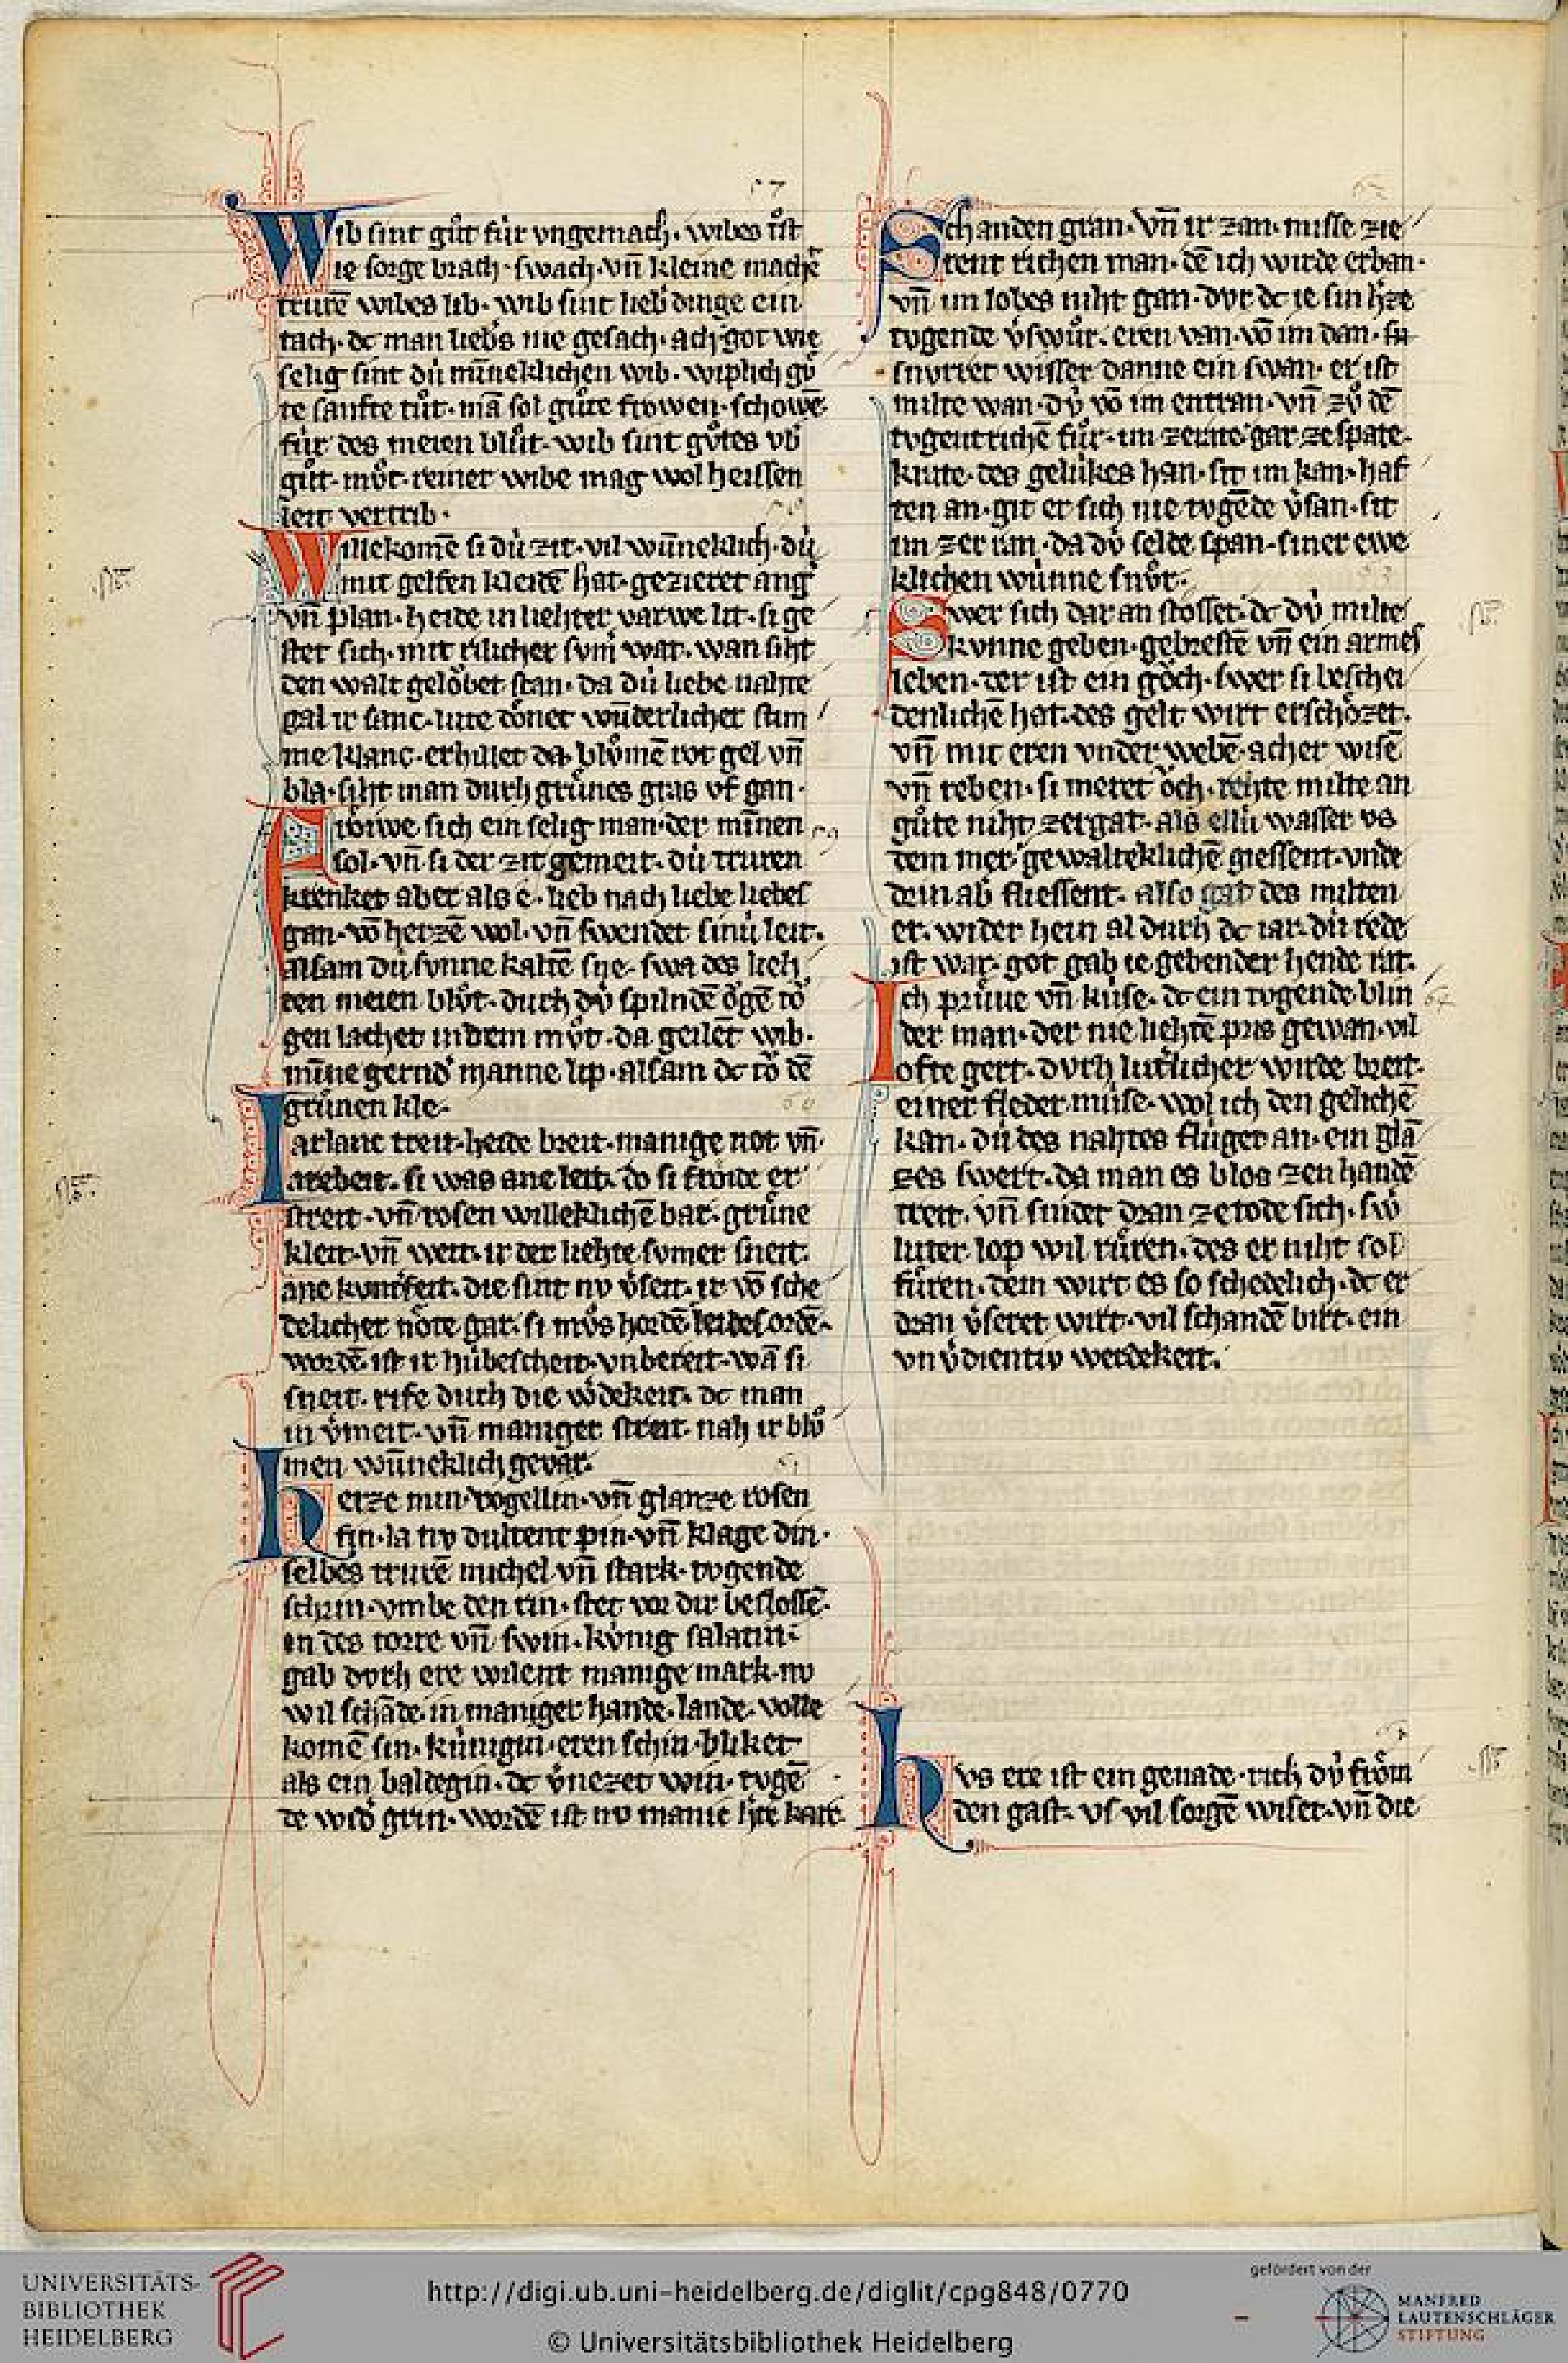 57
Wib sint gůt für vngemach. wibes tr̊st
ie sorge brach. swach. vn̄ kleine mache͛
trurē wibes lib. wib sint lieb͛ dinge ein
tach. dc man lieb͛s nie gesach. ach got wie
selig sint dú mīneklichen wib. wiplich gů
te sanfte tůt. mā sol gůte frowen. schowē.
für des meien blůt. wib sint gůtes vb͛
gůt. můt. reiner wibe mag wol heissen
leit vertrib.
Willekomē si dú zit. vil wūneklich. dú
mit gelfen kleidē hat. gezieret ang͛
vn̄ plan. heide in liehter varwe lit. si ge
stet sich. mit rilicher sum͛ wat. wan siht
den walt gelőbet stan. da dú liebe nahte
gal ir sanc. lute dőnet wūderlicher stim
me klanc. erhillet da. blůmē rot gel vn̄
bla. siht man durh grůnes gras vf gan.
Frőiwe sich ein selig man. der mīnen 59
sol. vn̄ si der zit gemeit. dú truren
krenket aber als e. lieb nach liebe liebes
gan. vō herzē wol. vn̄ swendet sinú leit.
alsam dú sunne kaltē sne. swa des lieh
ten meien blůt. durch dú spilndē őgē tő
gen lachet in dem můt. da geilet wib.
mīne gernd͛ manne lip. alsam dc tő dē
grůnen kle.
60
Iarlanc treit. heide breit. manige not vn̄
arebeit. si was ane leit. do si frőide er
streit. vn̄ rosen willeklichē bar. grůne
kleit. vn̄ weit. ir der liehte sumer sneit.
ane kunterfeit. die sint nv v͛seit. ir vō sche
delicher nőte gar. si můs hordē leides ordē.
wordē ist ir húbescheit. vnbereit. wā si
sneit. rife durh die wid͛ekeit. dc man
in v͛meit. vn̄ maniger streit. nah ir blů
men wūneklich gevar.
61
Herze min. vogellin. vn̄ glanze rosen
fin. la nv dultent pin. vn̄ klage din.
selbes trurē michel vn̄ stark. tvgende
schrin. vmbe den rin. stet vor dir beslossē.
in des torre vn̄ swin. kúnig salatin
gab dvrh ere wilent manige mark. nv
wil schāde. in maniger hande. lande. volle
komē sin. kúnigin. eren schin. bliket
als ein baldegin. dc v͛nezet win. tvgē
de wid͛ grin. wordē ist nv manic h͛re kark.
62
Schanden gran. vn̄ ir zan. misse zie
rent richen man. dē ich wirde erban.
vn̄ im lobes niht gan. dvr dc ie sin h͛ze
tvgende v͛swůr. eren van. vō im dan. sn
snvrret wisser danne ein swan. er ist
milte wan. dú vō im entran. vn̄ zů dē
tvgentrichē fůr. im zeinte gar ze spate.
krate. des gelúkes han. sit im kan. haf
ten an. git er sich nie tvgēde v͛san. sit
im zer ran. da dú selde span. siner ewe
klichen wúnne snůr.
63
Swer sich dar an stosset. dc dú milte
kvnne geben. gebrestē vn̄ ein armes
leben. der ist ein gőch. swer si beschei
denlichē hat. des gelt wirt erschőzet.
vn̄ mit eren vnder webē. acher wisē
vn̄ reben. si meret őch. rehte milte an
gůte niht zergat. als ellú wasser vs
dem mer. gewalteklichē giessent. vnde
drin ab fliessent. also gat des milten
er. wider hein al durh dc iar. dú rede
ist war. got gab ie gebender hende rat.
Ich průue vn̄ kúse. dc ein tvgende blin 64
der man. der nie liehtē pris gewan. vil
ofte gert. dvrh luterlicher wirde breit.
einer fleder múse. wol ich den gelichē
kan. dú des nahtes flúget an. ein glā
zes swert. da man es blos zen handē
treit. vn̄ snidet dran ze tode sich. sw͛
luter lop wil růren. des er niht sol
fůren. dem wirt es so schedelich. dc er
dran v͛seret wirt. vil schandē birt. ein
vnv͛dientiv werdekeit.
65
Hvs ere ist ein genade rich dú frőm
den gast. vs vil sorgē wiset. vn̄ die
UNIVERSITÄTS-
BIBLIOTHEK
HEIDELBERG
http://digi.ub.uni-heidelberg.de/diglit/cpg848/0770
© Universitätsbibliothek Heidelberg
gefördert von der
MANFRED
LAUTENSCHLÄGER
STIFTUNG